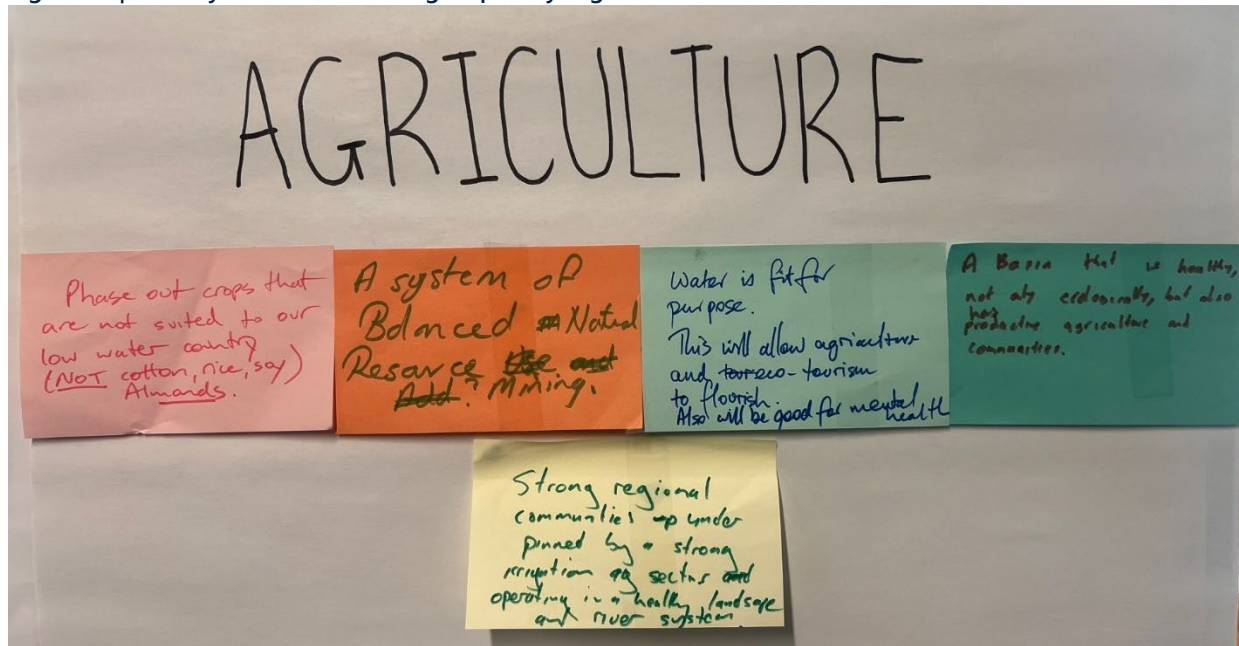 AGRICULTURE
Phase out crops that
are not suited to our
low water country
(NOT cotton, rice, soy)
Almonds.
A system of
Balanced Natural
Resource
Mining.
Water is fit for
purpose.
This will allow agriculture
and eco-tourism
to flourish.
Also will be good for mental
health
A Basin that is healthy,
not only ecologically, but also
has
productive agriculture and
communities.
Strong regional
communities under
pinned by a strong
irrigation ag sector
operating in a healthy landscape
and river system.